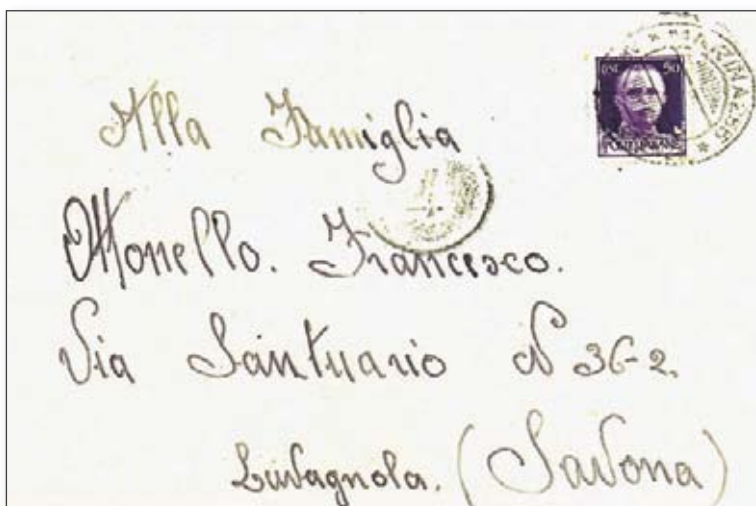 50
POSTE ITALIANE
Alla Famiglia
Ottonello. Francesco.
Via Santuario N 36-2.
Lavagnola. (Savona)